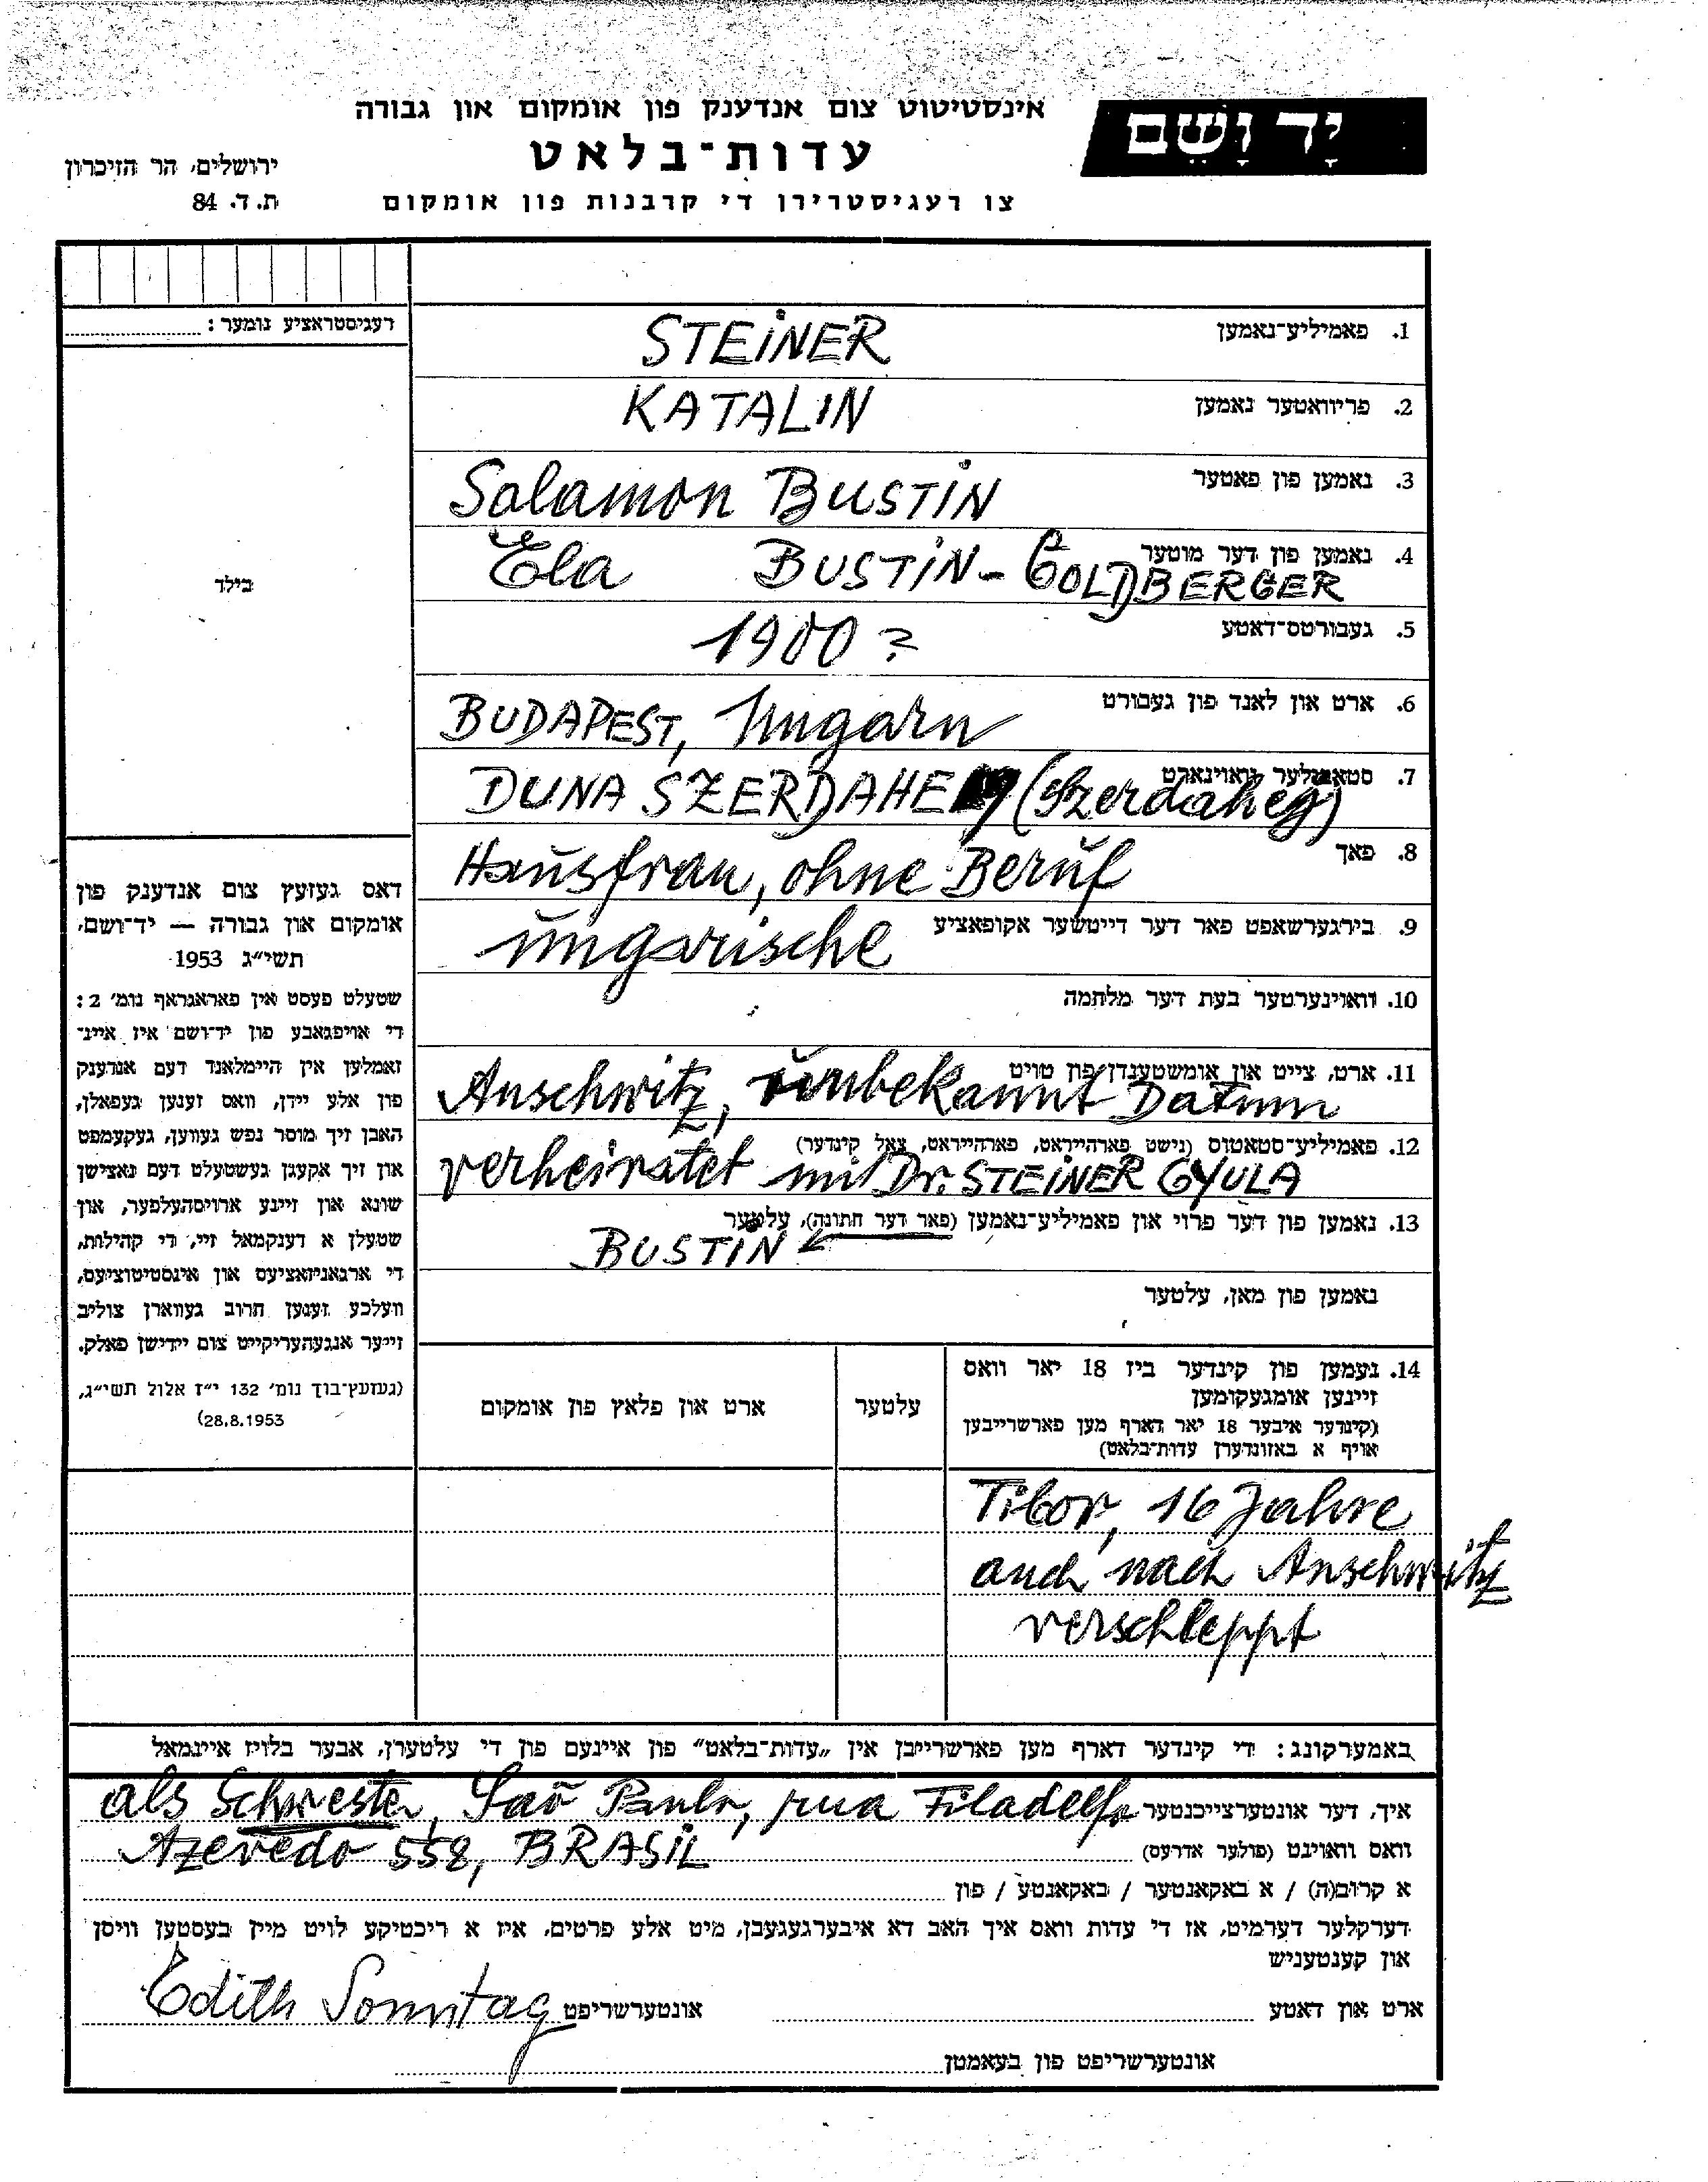 יָד וָשֵׁם
אינסטיטוט צום אנדענק פון אומקום און גבורה
עדות־בלאט
צו רעגיסטרירן די קרבנות פון אומקום
ירושלים, הר הזיכרון
ת. ד. 84
רעגיסטראציע נומער:
בילד
1. פאמיליע־נאמען
STEINER
2. פריוואטער נאמען
KATALIN
3. נאמען פון פאטער
Salamon BUSTIN
4. נאמען פון דער מוטער
Ela BUSTIN-GOLDBERGER
5. געבורטס־דאטע
1900 ?
6. ארט און לאנד פון געבורט
BUDAPEST, Ungarn
7. סטאבילער וואוינארט
DUNA SZERDAHELY (Szerdahey)
8. פאך
Hausfrau, ohne Beruf
9. בירגערשאפט פאר דער דייטשער אקופאציע
ungarische
10. וואוינערטער בעת דער מלחמה
11. ארט, צייט און אומשטענדן פון טויט
Auschwitz, unbekannt Datum
12. פאמיליע־סטאטוס (נישט פארהייראט, פארהייראט, צאל קינדער)
verheiratet mit Dr. STEINER GYULA
13. נאמען פון דער פרוי און פאמיליע־נאמען (פאר דער חתונה), עלטער
BUSTIN
נאמען פון מאן, עלטער
14. נעמען פון קינדער ביז 18 יאר וואס
זיינען אומגעקומען
(קינדער איבער 18 יאר דארף מען פארשרייבן
אויף א באזונדערן עדות־בלאט)
עלטער
ארט און פלאץ פון אומקום
Tibor, 16 Jahre
auch nach Auschwitz
verschleppt
דאס געזעץ צום אנדענק פון
אומקום און גבורה — יד־ושם,
תשי״ג 1953
שטעלט פעסט אין פאראגראף נומ׳ 2:
די אויפגאבע פון יד־ושם איז איינ־
זאמלען אין היימלאנד דעם אנדענק
פון אלע יידן, וואס זענען געפאלן,
האבן זיך מוסר נפש געווען, געקעמפט
און זיך אקעגן געשטעלט דעם נאצישן
שונא און זיינע ארויסהעלפער, און
שטעלן א דענקמאל זיי, די קהילות,
די ארגאניזאציעס און אינסטיטוציעס,
וועלכע זענען חרוב געווארן צוליב
זייער אנגעהעריקייט צום יידישן פאלק.
(געזעץ־בוך נומ׳ 132 י״ז אלול תשי״ג,
28.8.1953)
באמערקונג: די קינדער דארף מען פארשרייבן אין „עדות־בלאט” פון איינעם פון די עלטערן, אבער בלויז איינמאל
איך, דער אונטערצייכנטער als Schwester, Saõ Paulo, rua Filadelfo
וואס וואוינט (פולער אדרעס) Azevedo 558, BRASIL
א קרוב(ה) / א באקאנטער / באקאנטע / פון
דערקלער דערמיט, אז די עדות וואס איך האב דא איבערגעגעבן, מיט אלע פרטים, איז א ריכטיקע לויט מיין בעסטען וויסן
און קענטעניש
ארט און דאטע אונטערשריפט Edith Sonntag
אונטערשריפט פון בעאמטן